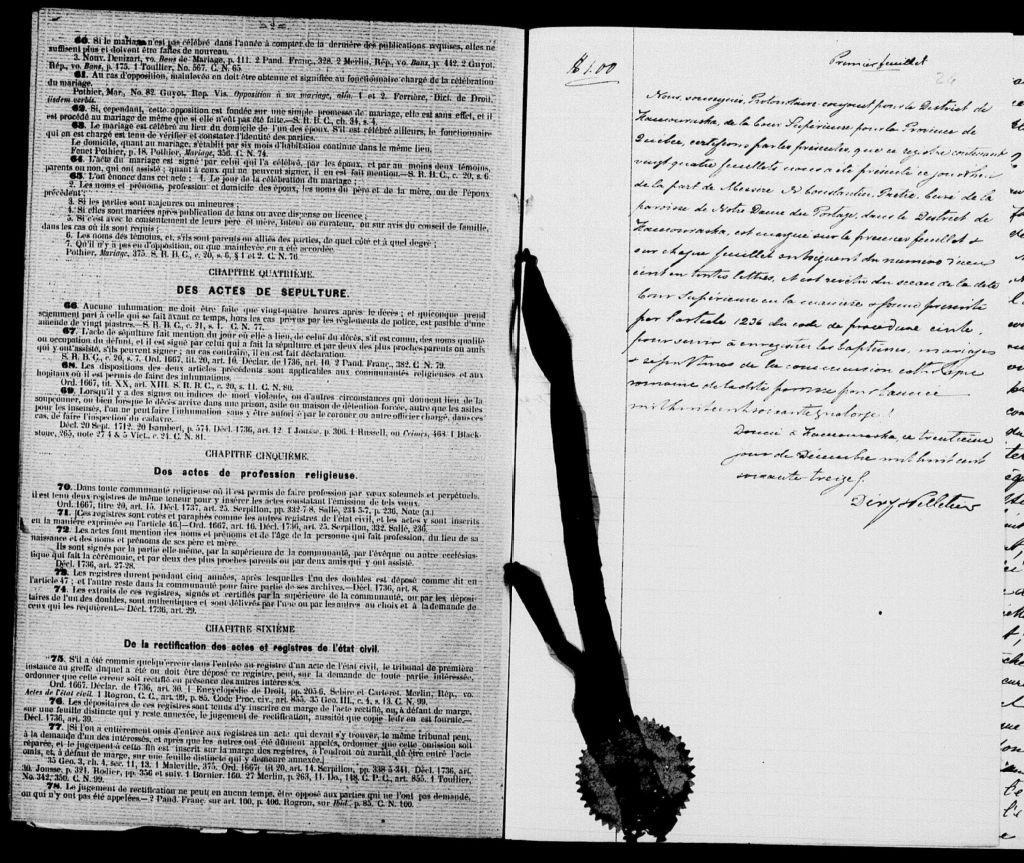 60. Si le mariage n'est pas célébré dans l'année à compter de la dernière des publications requises, elles ne
suffisent plus et doivent être faites de nouveau.
3. Nouv. Denizart, vo. Bans de Mariage, p. 111. 2 Pand. Franç., 328. 2 Merlin, Rép., vo. Bans, p. 442. 2 Guyot,
Rép., vo. Bans, p. 175. 1 Toullier, No. 567. C. N. 65.
61. Au cas d'opposition, mainlevée en doit être obtenue et signifiée au fonctionnaire chargé de la célébration
du mariage.
Pothier, Mar., No. 82. Guyot, Rep. Vis. Opposition à un mariage, 1 et 2. Ferrière, Dict. de Droit,
iisdem verbis.
62. Si, cependant, cette opposition est fondée sur une simple promesse de mariage, elle est sans effet, et il
est procédé au mariage de même que si elle n'eût pas été faite.—S. R. B. C., ch. 34, s. 4.
63. Le mariage est célébré au lieu du domicile de l'un des époux. S'il est célébré ailleurs, le fonctionnaire
qui en est chargé est tenu de vérifier et constater l'identité des parties.
Le domicile, quant au mariage, s'établit par six mois d'habitation continue dans le même lieu.
Fenet Pothier, p. 18. Pothier, Mariage, 356. C. N. 74.
64. L'acte du mariage est signé par celui qui l'a célébré, par les époux, et par au moins deux témoins,
parents ou non, qui ont assisté ; quant à ceux qui ne peuvent signer, il en est fait mention.—S. R. B. C., c. 20, s. 6.
65. L'on énonce dans cet acte : 1. Le jour de la célébration du mariage ;
2. Les noms et prénoms, profession et domicile des époux, les noms du père et de la mère, ou de l'époux
précédent ;
3. Si les parties sont majeures ou mineures ;
4. Si elles sont mariées après publication de bans ou avec dispense ou licence ;
5. Si c'est avec le consentement de leurs père et mère, tuteur ou curateur, ou sur avis du conseil de famille,
dans les cas où ils sont requis ;
6. Les noms des témoins, et, s'ils sont parents ou alliés des parties, de quel côté et à quel degré ;
7. Qu'il n'y a pas eu d'opposition, ou que mainlevée en a été accordée.
Pothier, Mariage, 375. S. R. B. C., c. 20, s. 6, § 1 et 2. C. N. 76
CHAPITRE QUATRIÈME.
DES ACTES DE SEPULTURE.
66. Aucune inhumation ne doit être faite que vingt-quatre heures après le décès ; et quiconque prend
sciemment part à celle qui se fait avant ce temps, hors les cas prévus par les règlements de police, est passible d'une
amende de vingt piastres.—S. R. B. C., c. 21, s. 1. C. N. 77.
67. L'acte de sépulture fait mention du jour où elle a lieu, de celui du décès, s'il est connu, des noms qualité
ou occupation du défunt, et il est signé par celui qui a fait la sépulture et par deux des plus proches parents ou amis
qui y ont assisté, s'ils peuvent signer ; au cas contraire, il en est fait déclaration.
S. R. B. C., c. 20, s. 7. Ord. 1667, tit. 20, art. 10. Déclar. de 1736, art. 10. 2 Pand. Franç., 382. C. N. 79.
68. Les dispositions des deux articles précédents sont applicables aux communautés religieuses et aux
hôpitaux où il est permis de faire des inhumations.
Ord. 1667, tit. XX, art. XIII. S. R. B. C., c. 20, s. 11. C. N. 80.
69. Lorsqu'il y a des signes ou indices de mort violente, ou d'autres circonstances qui donnent lieu de la
soupçonner, ou bien lorsque le décès arrive dans une prison, asile ou maison de détention forcée, autre que les asiles
pour les insensés, l'on ne peut faire l'inhumation sans y être autorisé par le coroner ou autre officier chargé, dans ces
cas, de faire l'inspection du cadavre.
Décl. 20 Sept. 1712. 20 Isambert, p. 574. Décl. 1736, art. 12. 1 Jousse, p. 306. 1 Russell, on Crimes, 468. 1 Black-
stone, 265, note 27. 4 & 5 Vict., c. 24. C. N. 81.
CHAPITRE CINQUIÈME.
Des actes de profession religieuse.
70. Dans toute communauté religieuse où il est permis de faire profession par vœux solennels et perpétuels,
il est tenu deux registres de même teneur pour y insérer les actes constatant l'émission de tels vœux.
Ord. 1667, titre 20, art. 15. Décl. 1737, art. 25. Serpillon, pp. 332-7-8. Sallé, 234-5-7, p. 236, Note (a.)
71. [Ces registres sont cotés et paraphés comme les autres registres de l'état civil, et les actes y sont inscrits
en la manière exprimée en l'article 46.]—Ord. 1667, art. 16. Décl. 1736, art. 25. Serpillon, 332. Sallé, 236.
72. Les actes font mention des noms et prénoms et de l'âge de la personne qui fait profession, du lieu de sa
naissance et des noms et prénoms de ses père et mère.
Ils sont signés par la partie elle même, par la supérieure de la communauté, par l'évêque ou autre ecclésias-
tique qui fait la cérémonie, et par deux des plus proches parents ou par deux amis qui y ont assisté.
Décl. 1736, art. 27-28.
73. Les registres durent pendant cinq années, après lesquelles l'un des doubles est déposé comme dit en
l'article 47 ; et l'autre reste dans la communauté pour faire partie de ses archives.—Décl. 1736, art. 8.
74. Les extraits de ces registres, signés et certifiés par la supérieure de la communauté, ou par les déposi-
taires de l'un des doubles, sont authentiques et sont délivrés par l'une ou par les autres au choix et à la demande de
ceux qui les requièrent.—Décl. 1736, art. 29.
CHAPITRE SIXIÈME
De la rectification des actes et registres de l'état civil.
75. S'il a été commis quelqu'erreur dans l'entrée au registre d'un acte de l'état civil, le tribunal de première
instance au greffe duquel a été ou doit être déposé ce registre, peut, sur la demande de toute partie intéressée,
ordonner que cette erreur soit rectifiée en présence des autres intéressés.
Ord. 1667. Déclar. de 1736, art. 30. 1 Encyclopédie de Droit, pp. 205-6. Sebire et Carteret. Merlin, Rép., vo.
Actes de l'état civil. 1 Rogron, C. C., art. 99, p. 85. Code Proc. civ., art. 855. 35 Geo. III., c. 4, s. 13. C. N. 99.
76. Les dépositaires de ces registres sont tenus d'y inscrire en marge de l'acte rectifié, ou, à défaut de marge,
sur une feuille distincte qui y reste annexée, le jugement de rectification, aussitôt que copie leur en est fournie.—
Décl. 1736, art. 39.
77. [Si l'on a entièrement omis d'entrer aux registres un acte qui devait s'y trouver, le même tribunal peut,
à la demande d'un des intéressés, et après que les autres ont été dûment appelés, ordonner que cette omission soit
réparée, et le jugement à cette fin est inscrit sur la marge des registres, à l'endroit où aurait dû être entré l'acte
omis, et, à défaut de marge, sur une feuille distincte qui y demeure annexée.]
35 Geo. 3, ch. 4, sec. 11, 13. 1 Maleville, 375. Ord. 1667, tit. 20, art. 14. Serpillon, pp. 338 5-341. Décl. 1736, art.
30. Jousse, p. 321. Rodier, pp. 356 et suiv. 1 Bornier, 160. 27 Merlin, p. 263, 11. Do., 148. C. P. C., art. 855. 1 Toullier,
No. 342, 350. C. N. 99.
78. Le jugement de rectification ne peut, en aucun temps, être opposé aux parties qui ne l'ont pas demandé,
ou qui n'y ont pas été appelées.—2 Pand. Franç. sur art. 100, p. 406. Rogron, sur Ibid., p. 85. C. N. 100.
$1.00
Premier feuillet
Nous, soussigné, Protonotaire conjoint pour le District de
Kamouraska, de la Cour Supérieure pour la Province de
Québec, certifions par les présentes, que ce registre contenant
vingt quatre feuillets nous a été présenté ce jourd'hui
de la part de Messire N. Constantin, Prêtre, Curé de la
paroisse de Notre Dame du Portage, dans le District de
Kamouraska, est marqué sur le premier feuillet &
sur chaque feuillet subséquent du numéro d'icelui
écrit en toutes lettres, et est revêtu du sceau de la dite
Cour Supérieure en la manière & forme prescrite
par l'article 1236 du code de procédure civile,
pour servir à enregistrer les baptêmes, mariages
& sépultures de la communion catholique
romaine de la dite paroisse pour l'année
mil huit cent soixante quatorze.
Donné à Kamouraska, ce trentième
jour de Décembre mil huit cent
soixante treize.
Pelletier